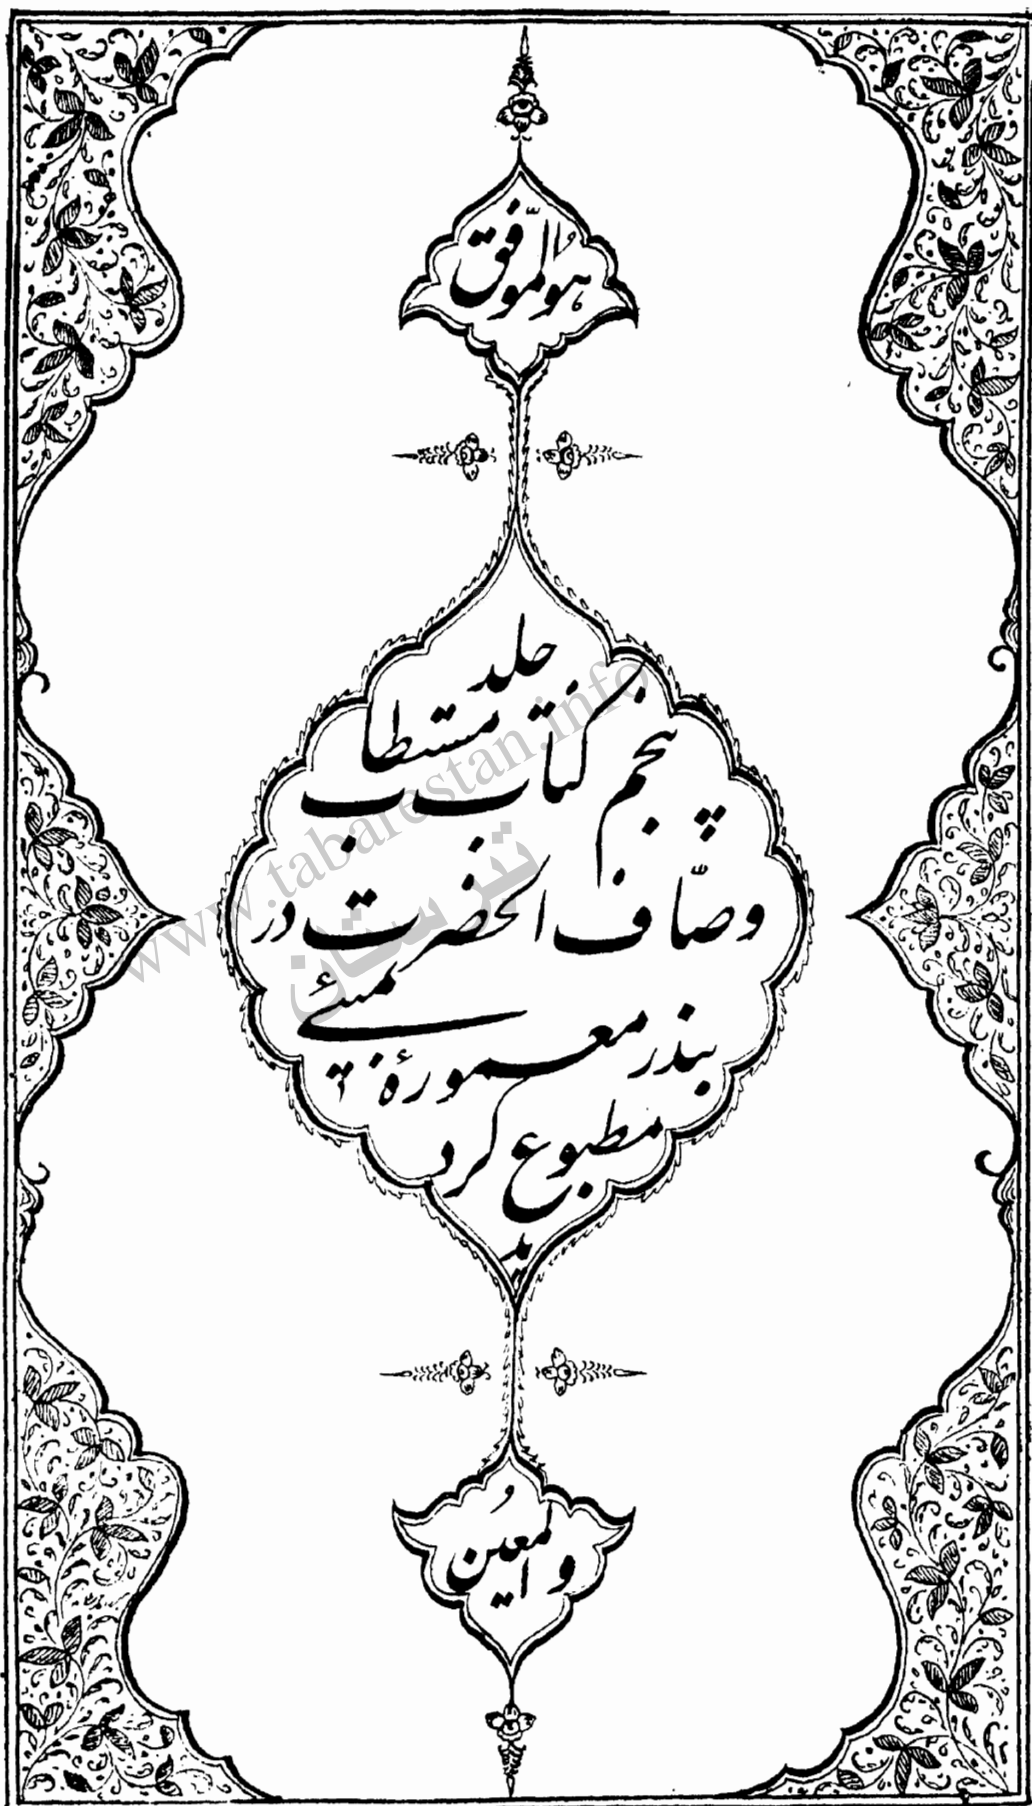 هو الموّفق
جلد
پنجم کتاب مستطاب
وصّاف الحضرت در
بندر معمورۀ بمبئی
مطبوع کردید
و المعین
www.tabarestan.info
تبرستان